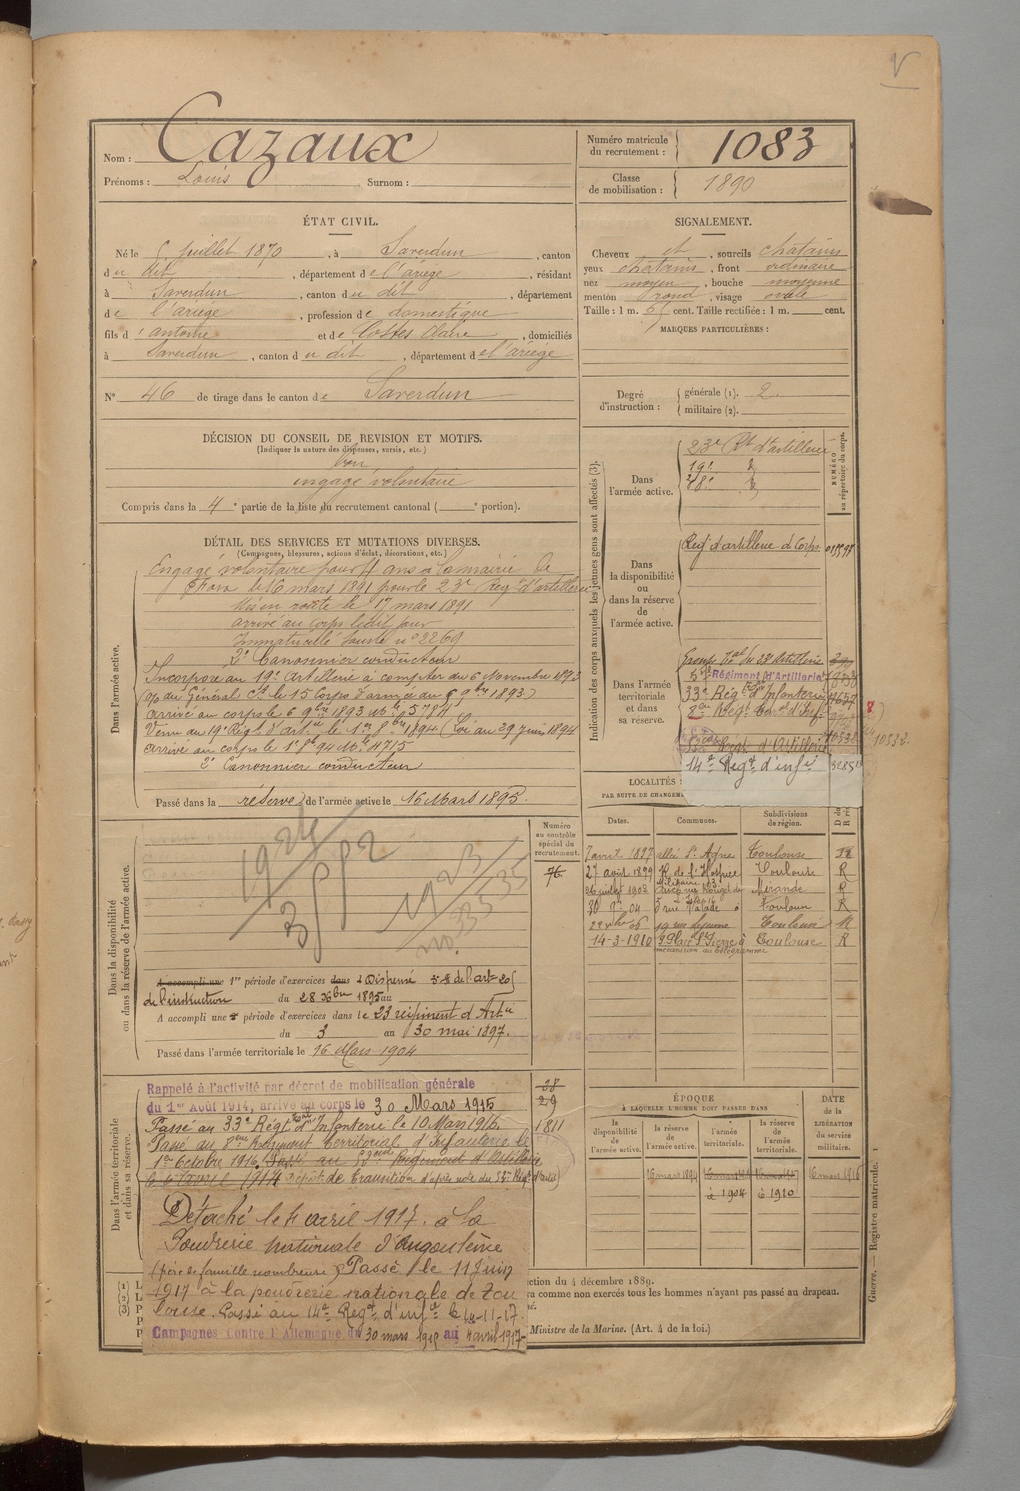 V
Nom : Cazaux
Prénoms : Louis Surnom :
Numéro matricule du recrutement : 1083
Classe de mobilisation : 1890
ÉTAT CIVIL.
Né le 5 juillet 1870, à Saverdun, canton
du dit, département de l'ariège, résidant
à Saverdun, canton du dit, département
de l'ariège, profession de domestique
fils d'antoine et de Costes Claire, domiciliés
à Saverdun, canton du dit, département de l'ariège
N° 46 de tirage dans le canton de Saverdun
SIGNALEMENT.
Cheveux et, sourcils chatains
yeux chatains, front ordinaire
nez moyen, bouche moyenne
menton rond, visage ovale
Taille : 1 m. cent. Taille rectifiée : 1 m. cent.
MARQUES PARTICULIÈRES :
Degré d'instruction : générale (1). 2
militaire (2).
DÉCISION DU CONSEIL DE REVISION ET MOTIFS.
(Indiquer la nature des dispenses, sursis, etc.)
bon
engagé volontaire
Compris dans la 4e partie de la liste du recrutement cantonal ( e portion).
DÉTAIL DES SERVICES ET MUTATIONS DIVERSES.
(Campagnes, blessures, actions d'éclat, décorations, etc.)
Dans l'armée active.
Engagé volontaire pour 4 ans à la mairie de
le 16 mars 1891 pour le 23e Régt d'artillerie
Mis en route le 17 mars 1891
arrivé au corps ledit jour
Immatriculé sous le n° 2269
2e Canonnier conducteur
Incorporé au 19e Artillerie à compter du 6 Novembre 1893
du Général Ct le 15 Corps d'armée du 9bre 1893)
arrivé au corps le 6 9bre 1893 No 5784
Venu du 19e Régt d'art le 1er 8bre 1894 (Loi du 29 juin 1894
arrivé au corps le 1er 8e 94 No 4715
2e Canonnier conducteur
Passé dans la réserve de l'armée active le 16 Mars 1895.
Indication des corps auxquels les jeunes gens sont affectés (3).
NUMÉRO au répertoire du corps.
Dans l'armée active.
23e Rt d'artillerie
19e
Dans la disponibilité ou dans la réserve de l'armée active.
Reg d'artillerie d Corps
Dans l'armée territoriale et dans sa réserve.
Groupe Tal du 23e Artillerie
Régiment d'Artillerie
33e Rég d'Infanterie
8e Régt Teral d'Inf
Régt d'Artillerie
10532.
14e Regt d'infie
LOCALITÉS
PAR SUITE DE CHANGEM
Dates. Communes. Subdivisions de région. D ou R
7 avril 1897 allée St Agne Toulouse
27 août 1899 R. de l'Hospice Toulouse R
Militaire
26 juillet 1902 Mirande R
04 Toulouse R
Toulouse R
14-3-1910 9 Place St Pierre à Toulouse R
Numéro au contrôle spécial du recrutement.
76
Dans la disponibilité ou dans la réserve de l'armée active.
1924
3592
1923
no 33535
A accompli une 1re période d'exercices dans Dispensé de l'art 205
de l'instruction du 28 Xbre 1895 au
A accompli une 2e période d'exercices dans le 23 régiment d'Artie
du 3 au 30 mai 1897.
Passé dans l'armée territoriale le 16 Mars 1904
Dans l'armée territoriale et dans sa réserve.
Rappelé à l'activité par décret de mobilisation générale
du 1er Août 1914, arrivé au corps le 30 Mars 1915
Passé au 33e Régt d'Infanterie le 10 Mai 1915.
Passé au 8eme Régiment territorial d'Infanterie le
1er Octobre 1916. Passé au Régiment d'Artillerie
le avril 1917 Dépôt de transition d'après note du Régt d'artie
29
1811
Détaché le 4 avril 1917. à la
Poudrerie nationale d'Angoulème
(père de famille nombreuse) Passé le 11 Juin
1917 à la poudrerie nationale de Tou
louse. Passé au 14e Regt d'infie le 14-11-17.
Campagnes Contre l'Allemagne du 30 mars 1915 au 4 avril 1917
ÉPOQUE
À LAQUELLE L'HOMME DOIT PASSER DANS
DATE DE LIBÉRATION du service militaire.
la disponibilité de l'armée active.
la réserve de l'armée active.
l'armée territoriale.
la réserve de l'armée territoriale.
16 mars 1894
à 1904
à 1910
16 mars 1916
(1) L
(2) L
(3) P
ction du 4 décembre 1889.
ra comme non exercés tous les hommes n'ayant pas passé au drapeau.
Ministre de la Marine. (Art. 4 de la loi.)
Guerre. — Registre matricule. 1